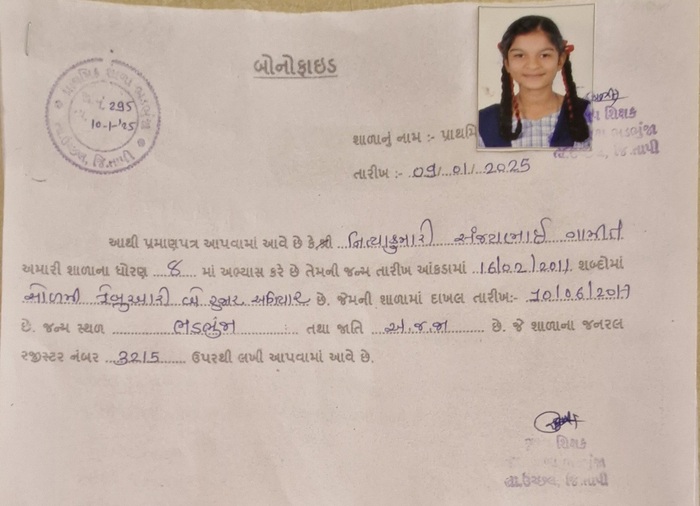 બોનોફાઇડ
પ્રાથમિક શાળા ભડભુંજા
જિ.તાપી
નં 295
10-1-'25
શિક્ષક
ભડભુંજા
જિ.તાપી
શાળાનું નામ :- પ્રાથમિ
તારીખ :- 09/01/2025
આથી પ્રમાણપત્ર આપવામાં આવે છે કે,શ્રી નિત્યાકુમારી સંજયભાઈ ગામીત
અમારી શાળાના ધોરણ 8 માં અભ્યાસ કરે છે તેમની જન્મ તારીખ આંકડામાં 16/02/2011 શબ્દોમાં
સોળમી ફેબ્રુઆરી બે હજાર અગિયાર છે. જેમની શાળામાં દાખલ તારીખ:- 10/06/2017
છે. જન્મ સ્થળ ભડભુંજા તથા જાતિ અ.જ.જા છે. જે શાળાના જનરલ
રજીસ્ટર નંબર 3215 ઉપરથી લખી આપવામાં આવે છે.
શિક્ષક
તા.ઉચ્છલ, જિ.તાપી